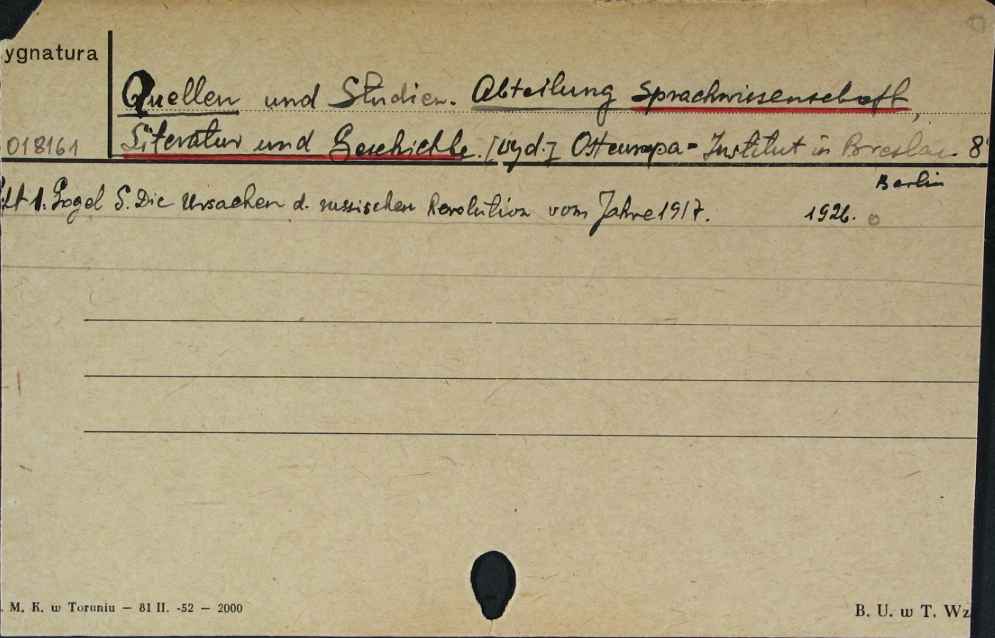 ygnatura
Quellen und Studien. Abteilung Sprachwissenschaft,
018161 Literatur und Geschichte. [Wyd.] Osteuropa-Institut in Breslau 8°
Berlin
1. Gogel S. Die Ursachen d. russischen Revolution vom Jahre 1917. 1926.
. M. K. w Toruniu — 81 II. -52 — 2000
B. U. w T. Wz